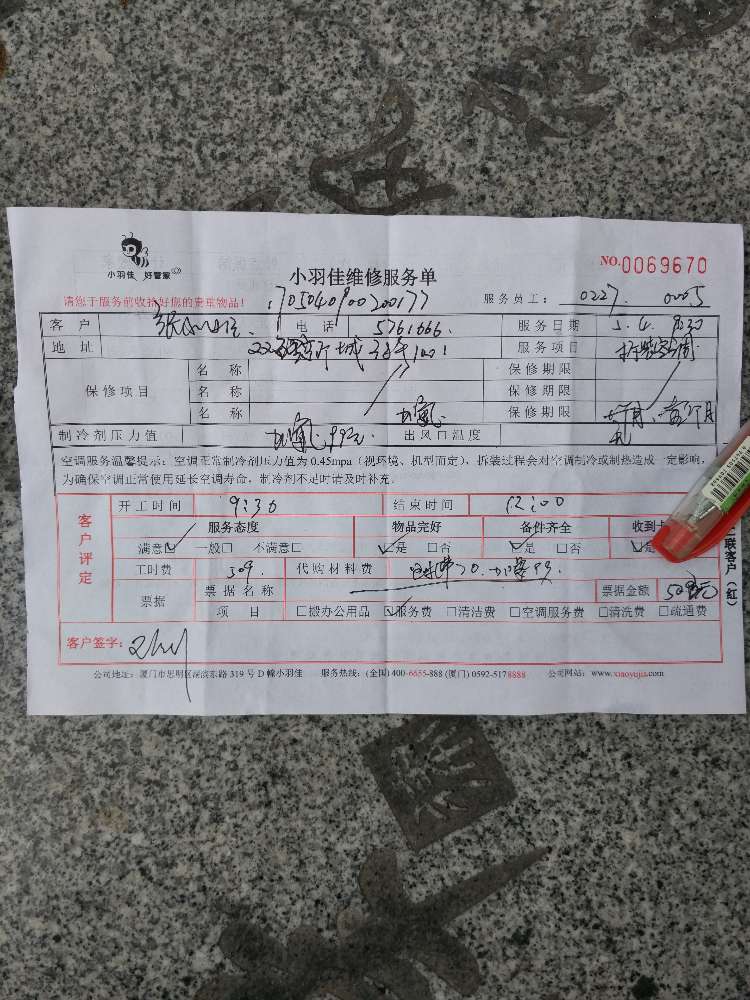 小羽佳 好管家
小羽佳维修服务单
NO.0069670
请您于服务前收拾好您的贵重物品!
服务员工: 0227. 0005
客户 电话 5761666. 服务日期 5.4. 9:30
地址 服务项目
保修项目 名称 保修期限
名称 保修期限
名称 保修期限
制冷剂压力值 加氟 99元. 出风口温度
空调服务温馨提示:空调正常制冷剂压力值为0.45mpa(视环境、机型而定),拆装过程会对空调制冷或制热造成一定影响,
为确保空调正常使用延长空调寿命,制冷剂不足时请及时补充.
开工时间 9:30 结束时间 12:00
客户评定
服务态度 物品完好 备件齐全 收到
满意☑ 一般□ 不满意□ ☑是 □否 ☑是 □否 ☑是
工时费 309. 代购材料费
票据 票据名称 票据金额
项目 □搬办公用品 ☑服务费 □清洁费 □空调服务费 □清洗费 □疏通费
客户签字:
联客户(红)
公司地址:厦门市思明区湖滨东路319号D幢小羽佳 服务热线:(全国)400-6655-888(厦门)0592-5178888 公司网站:www.xiaoyujia.com